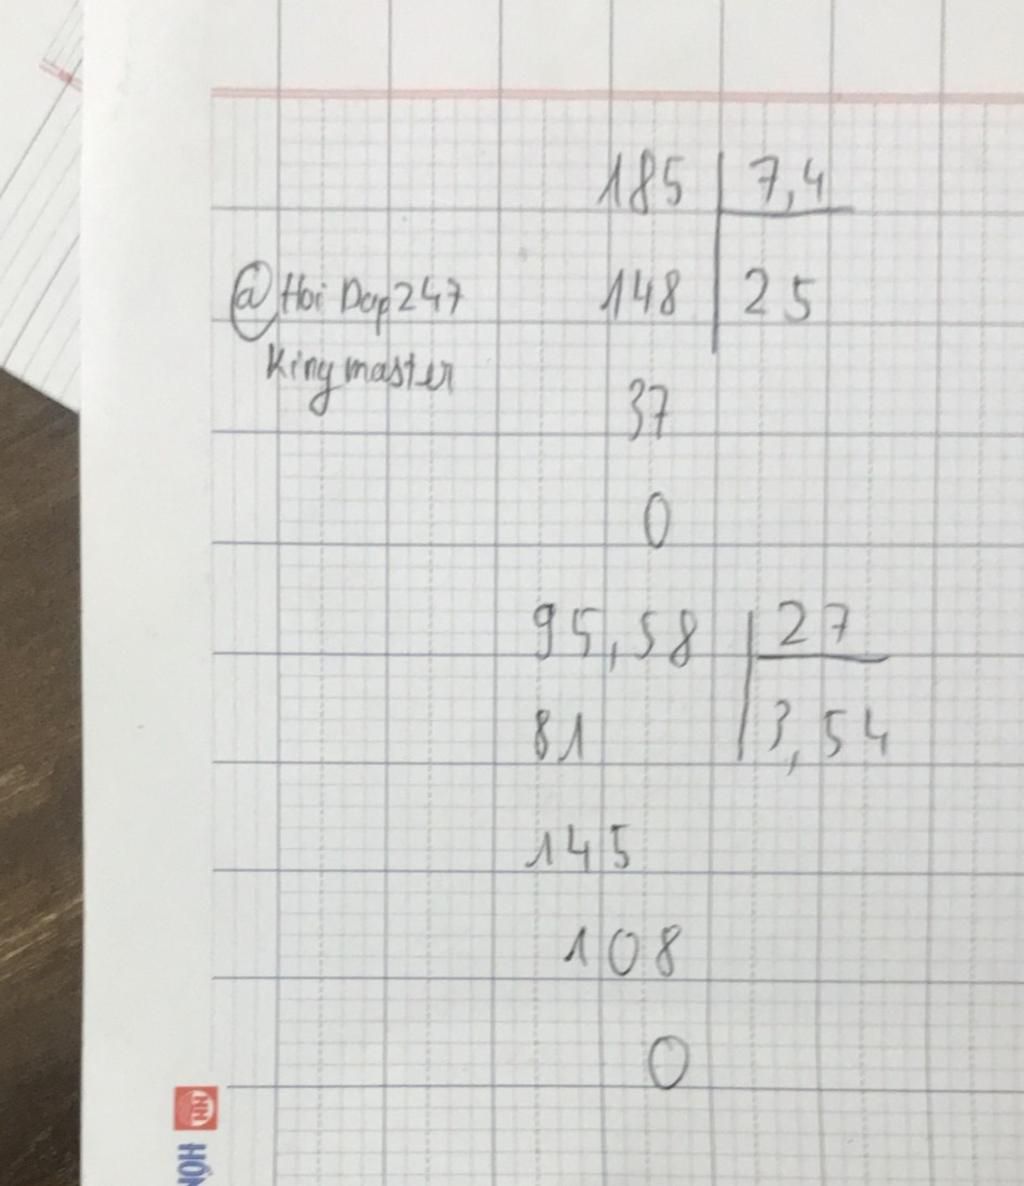 185 | 7,4
@Hoi Dap247
148 | 25
Kingmaster
37
0
95,58 | 27
81 | 3,54
145
108
0